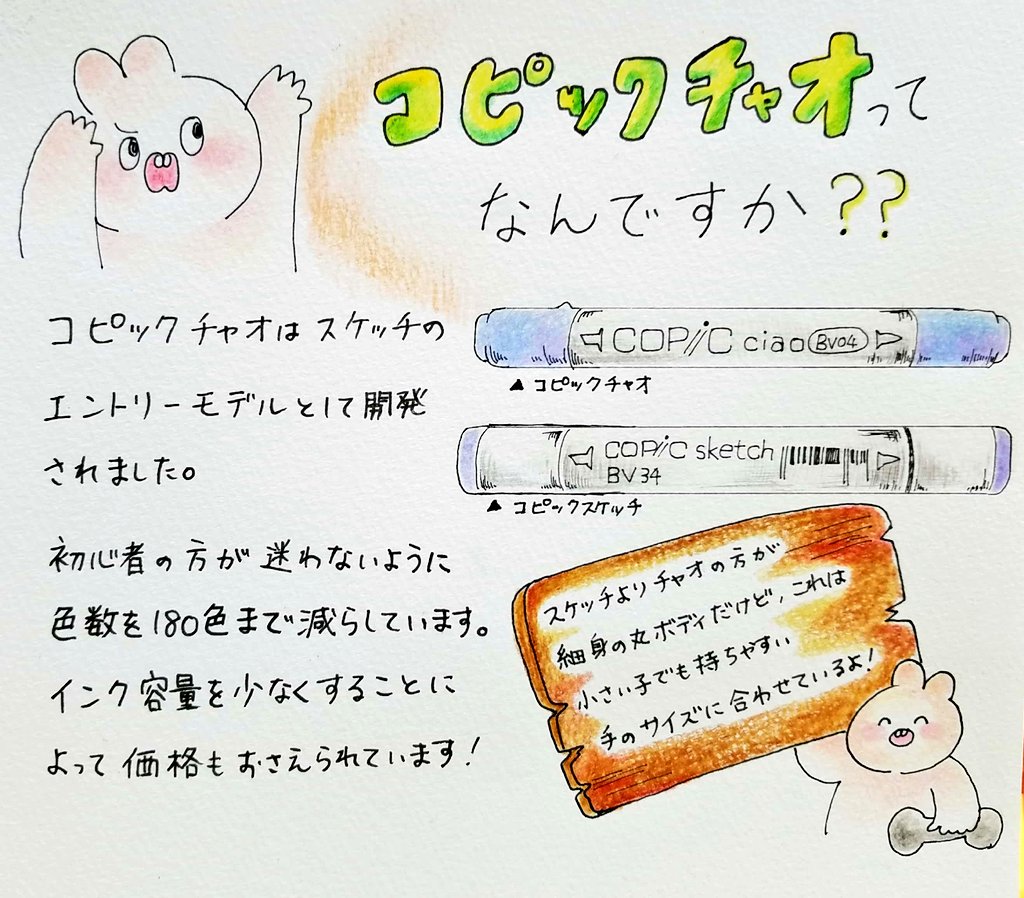 コピックチャオって
なんですか??
コピックチャオはスケッチの
エントリーモデルとして開発
されました。
初心者の方が迷わないように
色数を180色まで減らしています。
インク容量を少なくすることに
よって価格もおさえられています!
COPiC ciao BV04
▲コピックチャオ
COPiC sketch
BV34
▲コピックスケッチ
スケッチよりチャオの方が
細身の丸ボディだけど,これは
小さい子でも持ちやすい
手のサイズに合わせているよ!